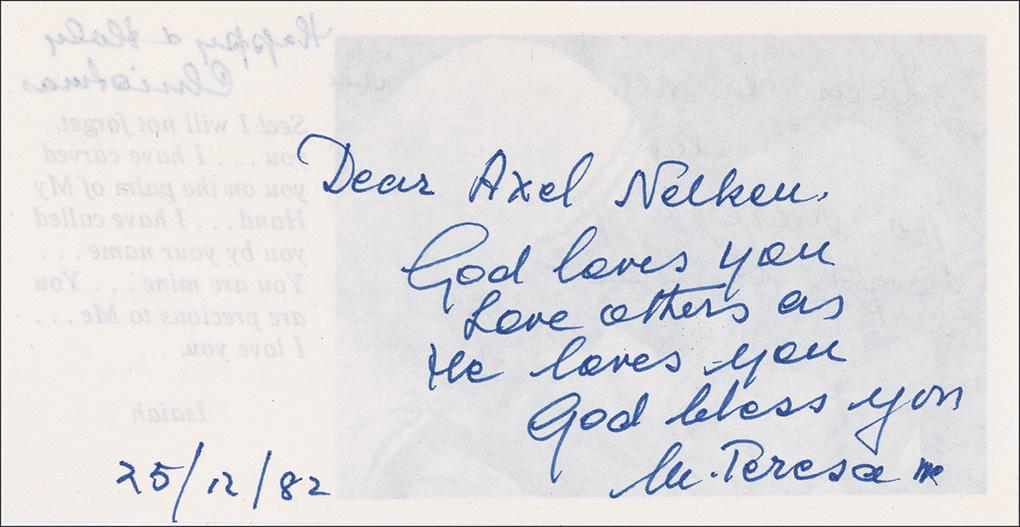 Happy & Holy
Christmas
See! I will not forget
you . . . I have carved
you on the palm of My
Hand. . . . I have called
you by your name . . .
You are mine . . . . You
are precious to Me . . .
I love you.
Isaiah
Dear Axel Nelken.
God loves you
Love others as
He loves you
God bless you
M. Teresa mc
25/12/82